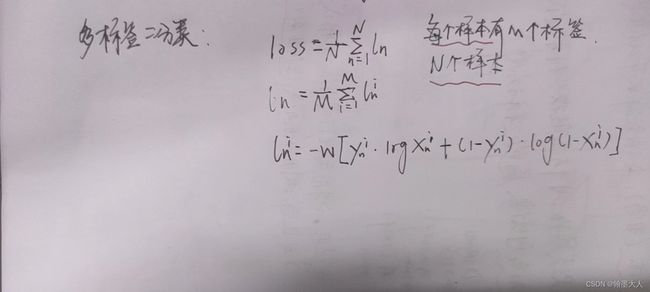 多标签二分类:
loss = 1/N ∑_{n=1}^{N} ln
每个样本有M个标签.
N个样本
ln = 1/M ∑_{i=1}^{M} ln^i
ln^i = -w[yn^i · log xn^i + (1-yn^i) · log(1-xn^i)]
CSDN @翰墨大人